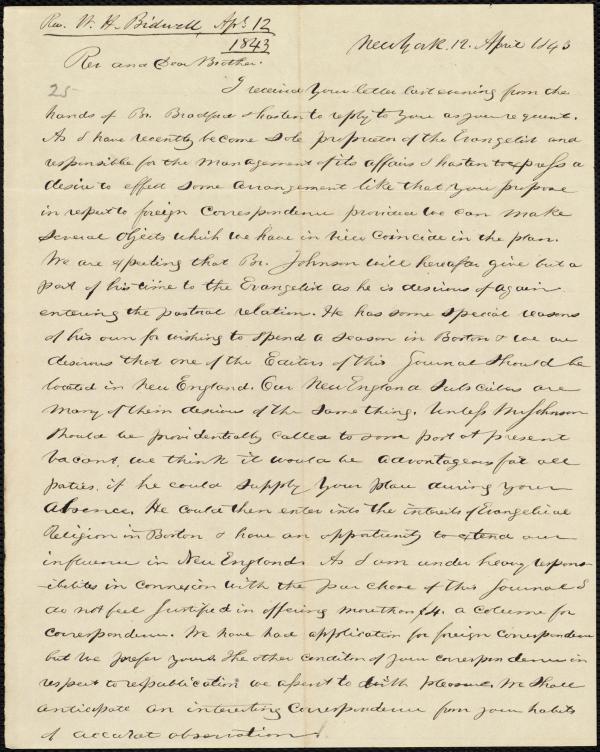 Rev. W. H. Bidwell, Apl. 12
1843
New York 12. April 1843
Rev and Dear Brother.
25
I received your letter last evening from the
hands of Br. Bradford & hasten to reply to you as you request.
As I have recently become sole proprietor of the Evangelist and
responsible for the management of its affairs I hasten to express a
desire to effect some arrangement like that you propose
in respect to foreign correspondence provided we can make
several objects which we have in view coincide in the plan.
We are expecting that Br. Johnson will hereafter give but a
part of his time to the Evangelist as he is desirous of again
entering the pastoral relation. He has some special reasons
of his own for wishing to spend a season in Boston & we are
desirous that one of the Editors of this Journal should be
located in New England. Our New England Subscribers are
many of them desirous of the same thing. Unless Mr Johnson
should be providentially called to some post at present
vacant, we think it would be advantageous for all
parties, if he could supply your place during your
absence. He could then enter into the interests of Evangelical
Religion in Boston & have an opportunity to extend our
influence in New England. As I am under heavy respons-
-ibilities in connexion with the purchase of this Journal I
do not feel justified in offering more than $4. a column for
correspondence. We have had application for foreign correspondence
but we prefer yours. The other condition of your correspondence in
respect to republication we assent to with pleasure. We shall
anticipate an interesting correspondence from your habits
of accurate observation.